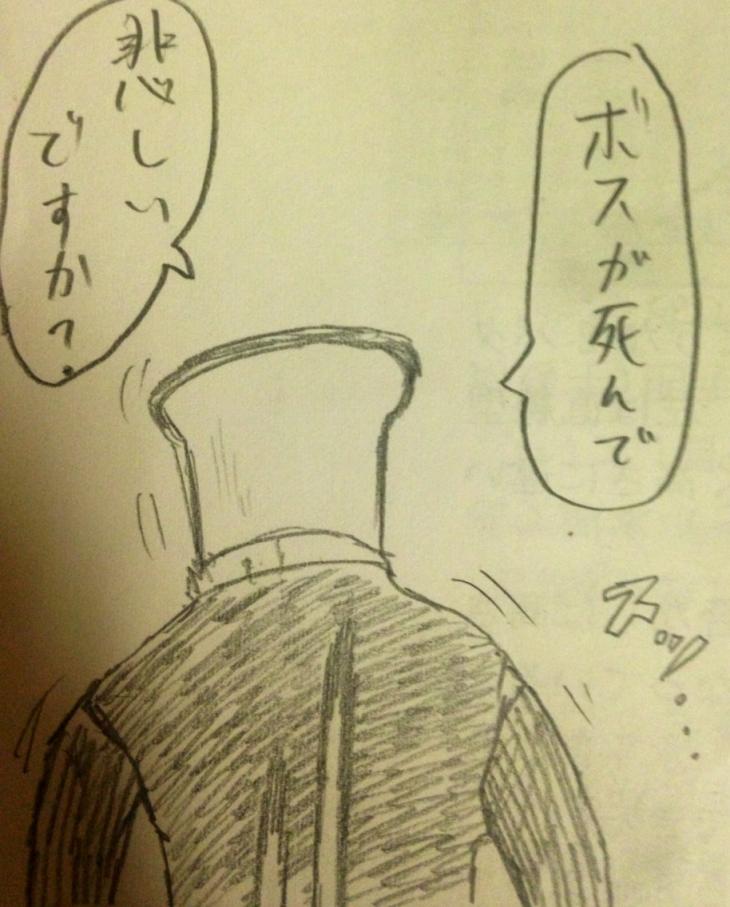 ボスが死んで
悲しい
ですか?
ズッ…